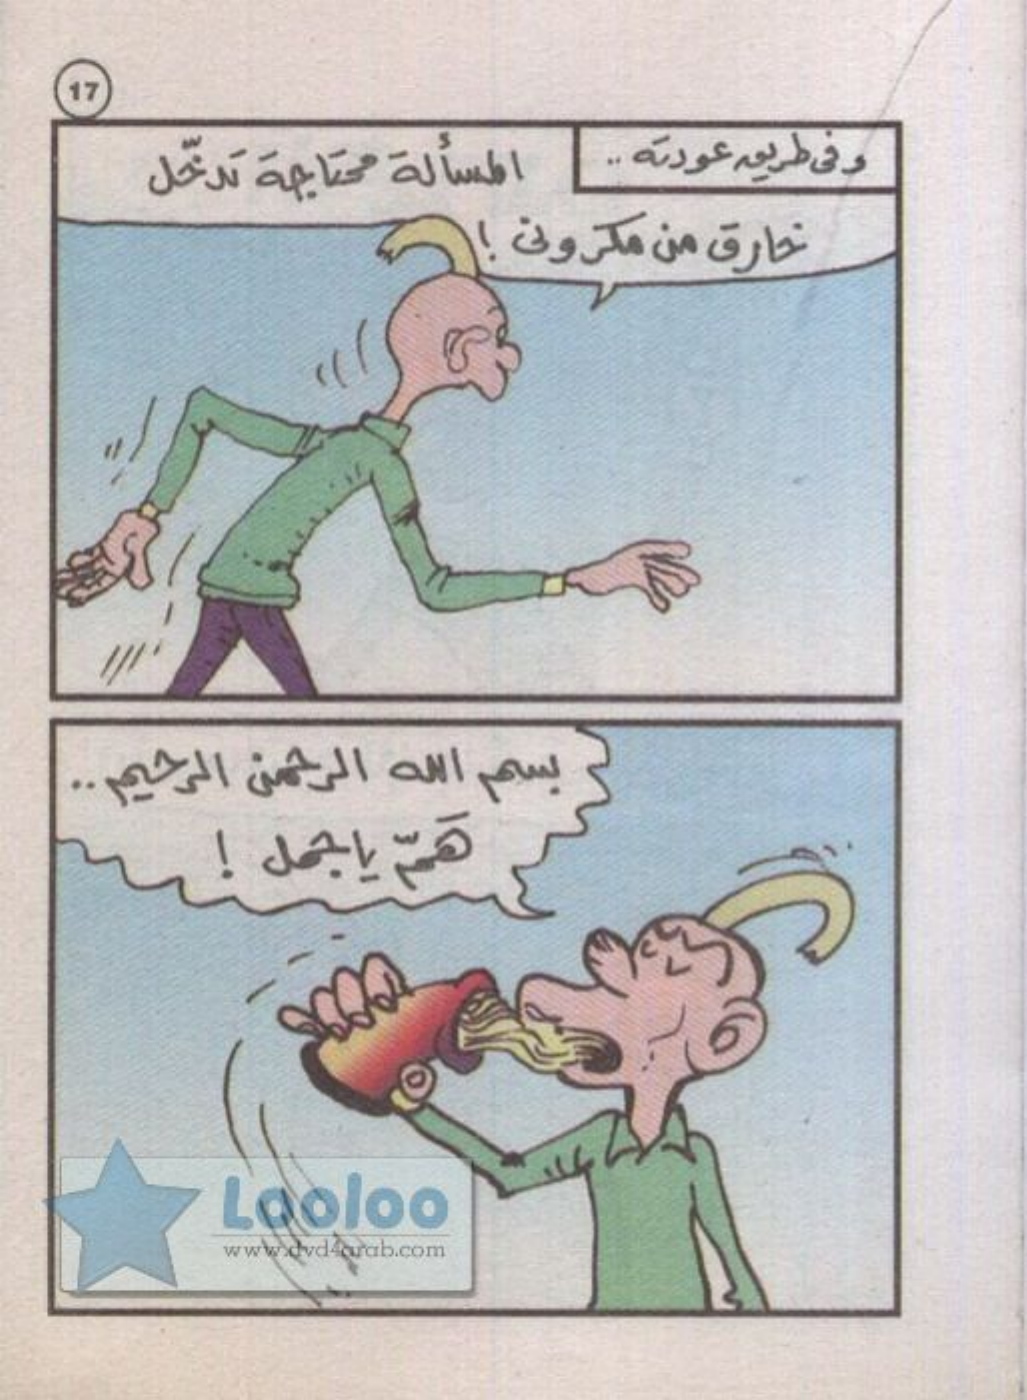 17
وفى طريق عودته ..
المسألة محتاجة تدخّل
خارق من مكرونى !
بسم الله الرحمن الرحيم ..
هَمّ يا جمل !
Laoloo
www.dvd4arab.com